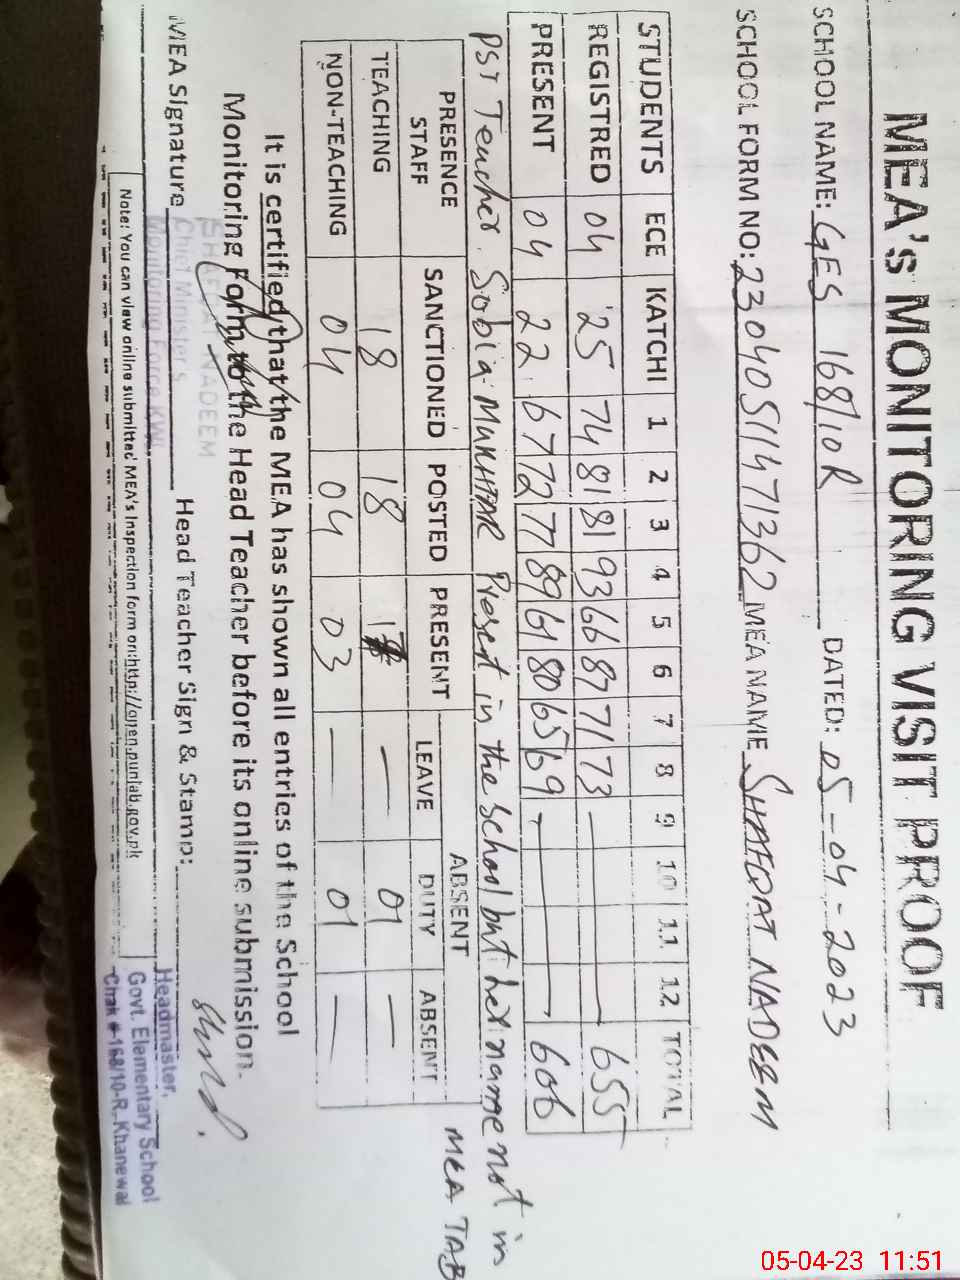 MEA's MONITORING VISIT PROOF
SCHOOL NAME: GES 168/10R DATED: 05-04-2023
SCHOOL FORM NO: 2304051147 1362 MEA NAME SHAFQAT NADEEM
STUDENTS ECE KATCHI 1 2 3 4 5 6 7 8 9 10 11 12 TOTAL
REGISTRED 04 25 74 81 81 93 66 87 71 73 — 655
PRESENT 04 22 67 72 77 89 61 80 65 69 — 606
PST Teacher Sobia MUKHTAR Present in the school but her name not in
MEA TAB
PRESENCE STAFF SANCTIONED POSTED PRESENT ABSENT
LEAVE DUTY ABSENT
TEACHING 18 18 — 01 —
NON-TEACHING 04 04 03 — 01 —
It is certified that the MEA has shown all entries of the School
Monitoring Form to the Head Teacher before its online submission.
SHAFQAT NADEEM
Chief Minister's
Monitoring Force KWL
MEA Signature Head Teacher Sign & Stamp:
Headmaster,
Govt. Elementary School
Chak # 168/10-R, Khanewal
Note: You can view online submitted MEA's Inspection form on:http://open.punjab.gov.pk
05-04-23 11:51